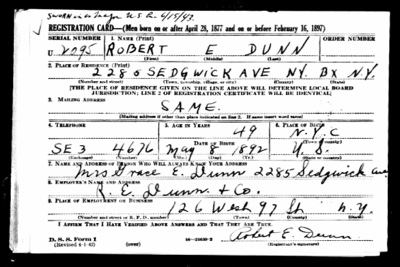 Sworn in as Major U.S.A. 4/15/43.
REGISTRATION CARD—(Men born on or after April 28, 1877 and on or before February 16, 1897)
SERIAL NUMBER 1. NAME (Print) ORDER NUMBER
U 2295 ROBERT E DUNN
(First) (Middle) (Last)
2. PLACE OF RESIDENCE (Print)
2285 SEDGWICK AVE NY. BX N.Y.
(Number and street) (Town, township, village, or city) (County) (State)
[THE PLACE OF RESIDENCE GIVEN ON THE LINE ABOVE WILL DETERMINE LOCAL BOARD
JURISDICTION; LINE 2 OF REGISTRATION CERTIFICATE WILL BE IDENTICAL]
3. MAILING ADDRESS
SAME.
[Mailing address if other than place indicated on line 2. If same insert word same]
4. TELEPHONE 5. AGE IN YEARS 6. PLACE OF BIRTH
49 N.Y.C
DATE OF BIRTH (Town or county)
SE 3 4676 May 8 1892 U.S.
(Exchange) (Number) (Mo.) (Day) (Yr.) (State or country)
7. NAME AND ADDRESS OF PERSON WHO WILL ALWAYS KNOW YOUR ADDRESS
Mrs Grace E. Dunn 2285 Sedgwick Ave
8. EMPLOYER'S NAME AND ADDRESS
R. E. Dunn & Co.
9. PLACE OF EMPLOYMENT OR BUSINESS
126 West 97 St. N.Y.
(Number and street or R. F. D. number) (Town) (County) (State)
I AFFIRM THAT I HAVE VERIFIED ABOVE ANSWERS AND THAT THEY ARE TRUE.
D. S. S. Form 1
(Revised 4-1-42) (over) Robert E. Dunn
(Registrant's signature)